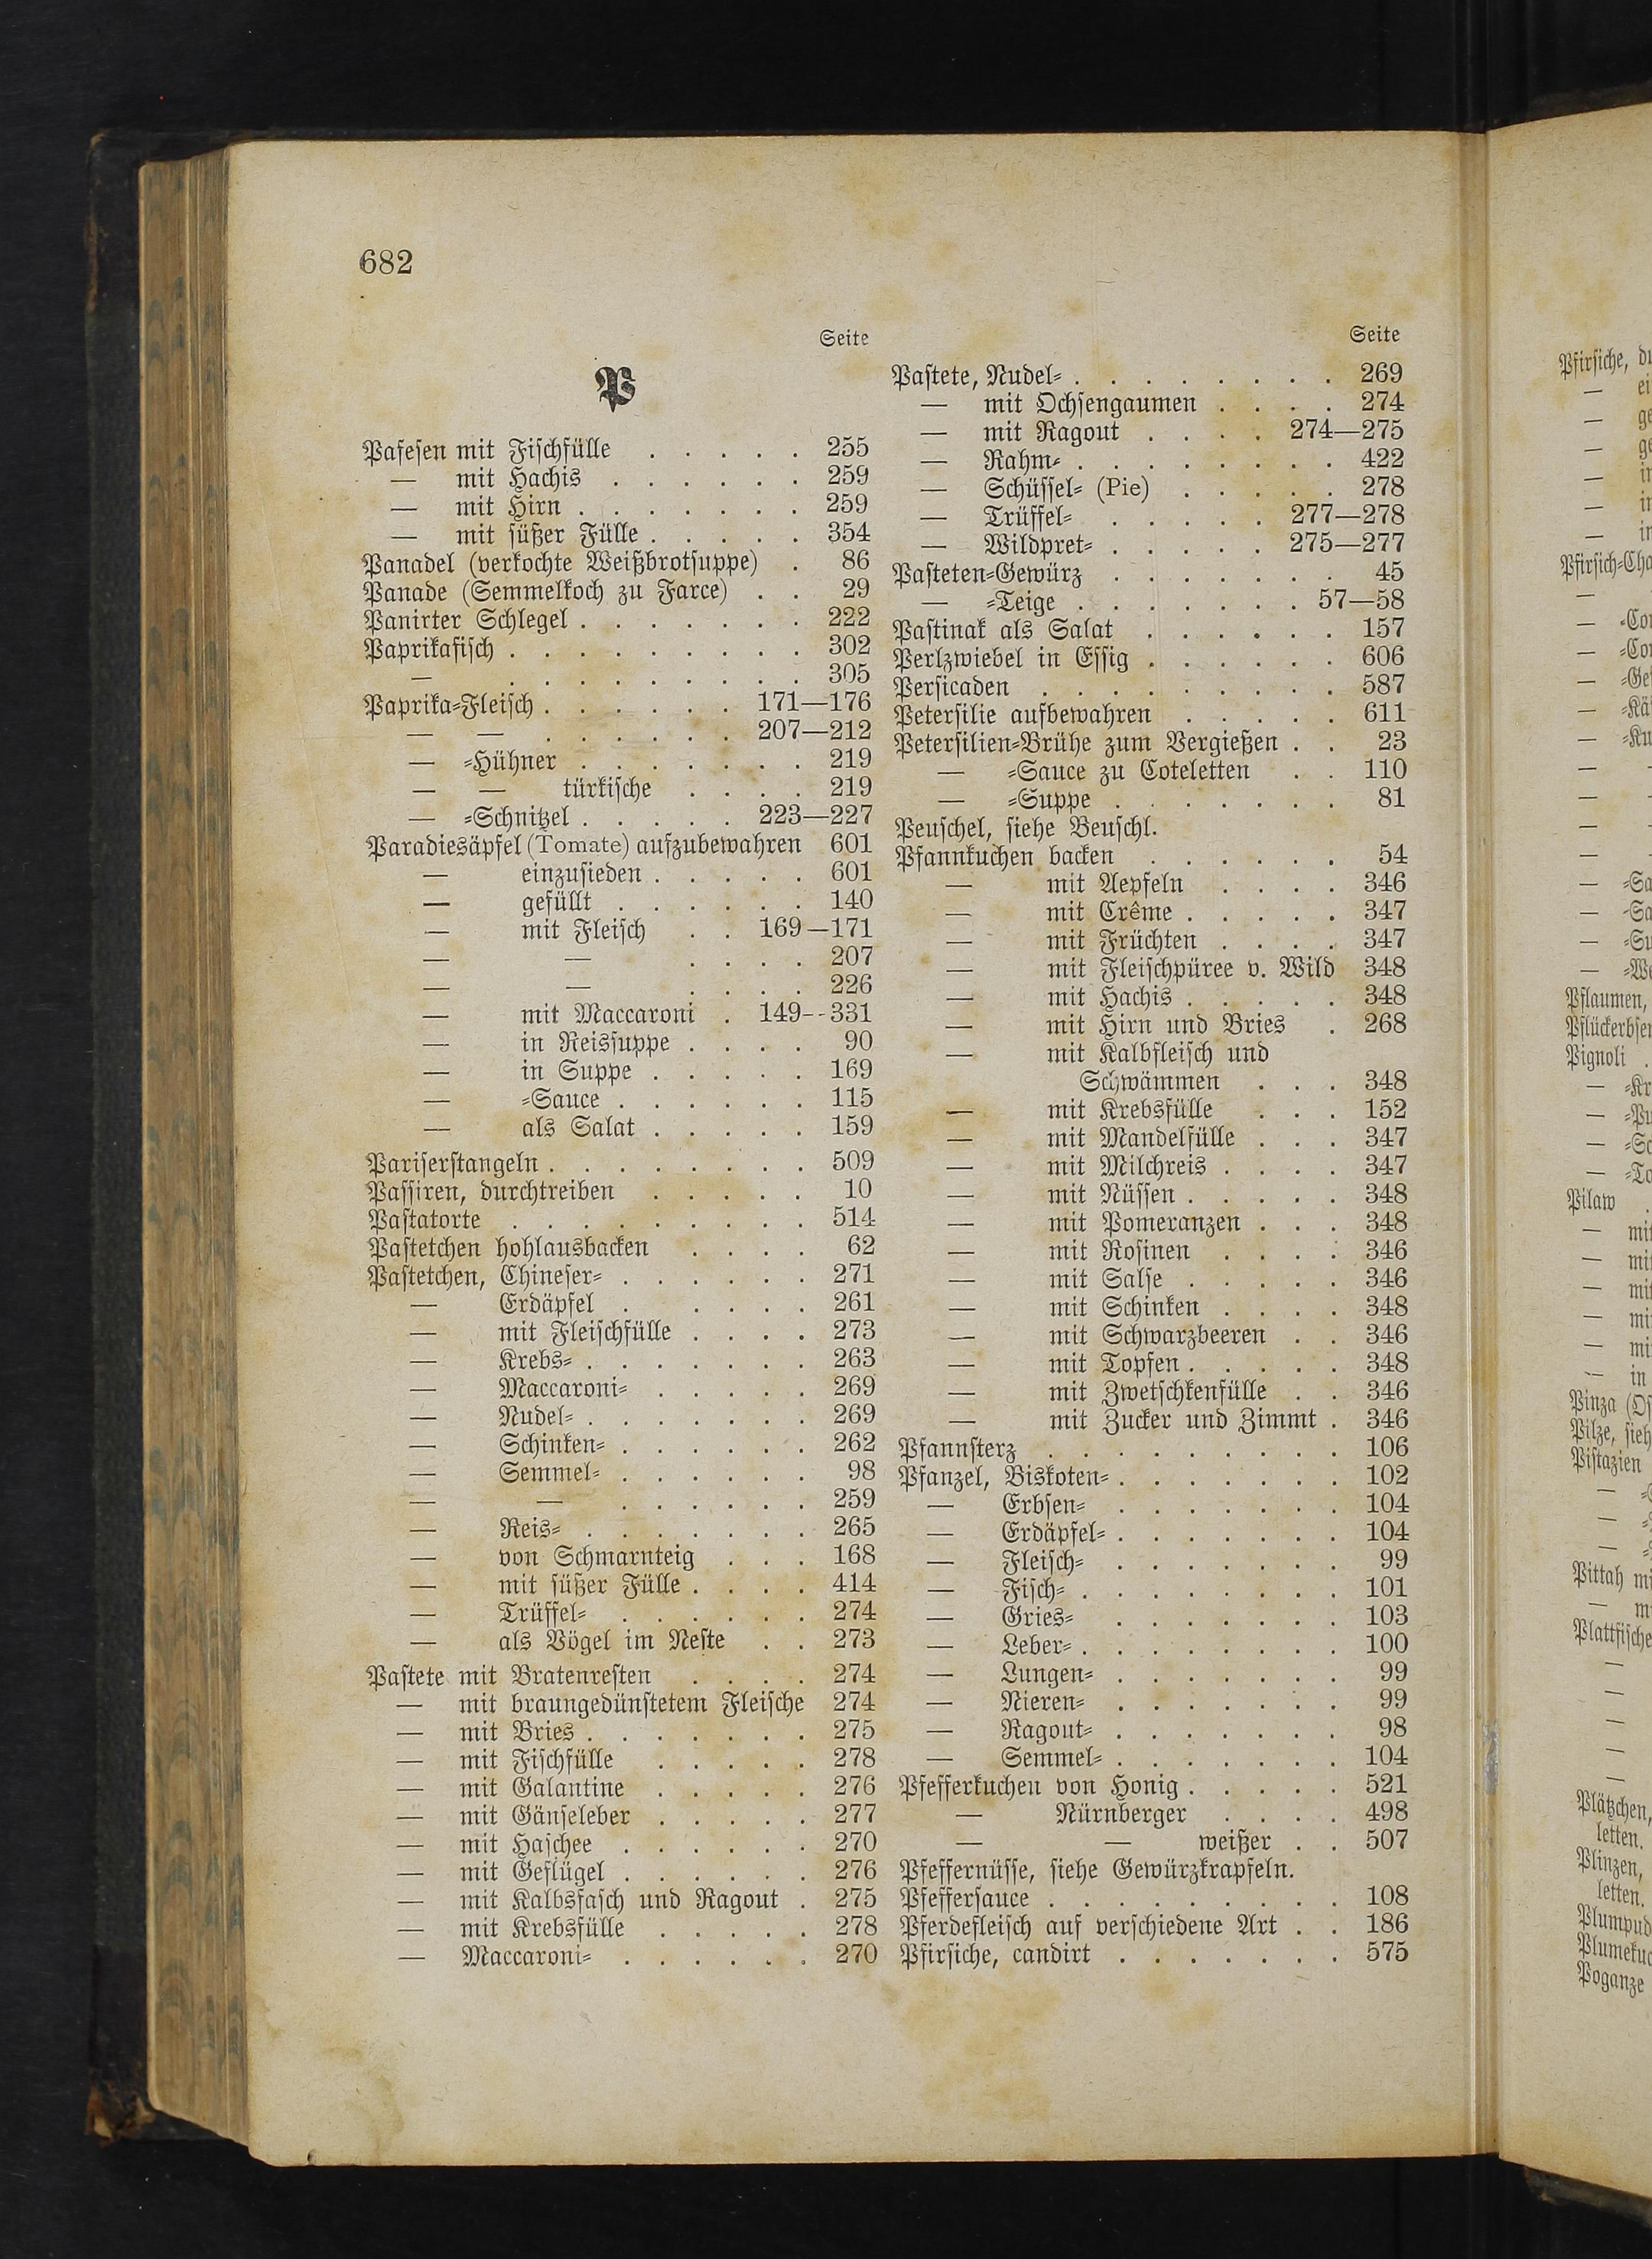 682
Seite
P
Pafesen mit Fischfülle . . . . . 255
— mit Hachis . . . . . . 259
— mit Hirn . . . . . . . 259
— mit süßer Fülle . . . . . 354
Panadel (verkochte Weißbrotsuppe) . 86
Panade (Semmelkoch zu Farce) . . 29
Panirter Schlegel . . . . . . . 222
Paprikafisch . . . . . . . . . 302
— . . . . . . . . . 305
Paprika-Fleisch . . . . . . 171—176
— — . . . . . . 207—212
— -Hühner . . . . . . . 219
— — türkische . . . . 219
— -Schnitzel . . . . . 223—227
Paradiesäpfel (Tomate) aufzubewahren 601
— einzusieden . . . . . 601
— gefüllt . . . . . . 140
— mit Fleisch . . 169—171
— — . . . . 207
— — . . . . 226
— mit Maccaroni . 149--331
— in Reissuppe . . . . 90
— in Suppe . . . . . 169
— -Sauce . . . . . . 115
— als Salat . . . . . 159
Pariserstangeln . . . . . . . . 509
Passiren, durchtreiben . . . . . 10
Pastatorte . . . . . . . . . 514
Pastetchen hohlausbacken . . . . 62
Pastetchen, Chineser- . . . . . . 271
— Erdäpfel . . . . . 261
— mit Fleischfülle . . . . 273
— Krebs- . . . . . . . 263
— Maccaroni- . . . . . 269
— Nudel- . . . . . . . 269
— Schinken- . . . . . . 262
— Semmel- . . . . . . 98
— — . . . . . . 259
— Reis- . . . . . . . 265
— von Schmarnteig . . . 168
— mit süßer Fülle . . . . 414
— Trüffel- . . . . . . 274
— als Vögel im Neste . . 273
Pastete mit Bratenresten . . . . 274
— mit braungedünstetem Fleische 274
— mit Bries . . . . . . . 275
— mit Fischfülle . . . . . 278
— mit Galantine . . . . . 276
— mit Gänseleber . . . . . 277
— mit Haschee . . . . . . 270
— mit Geflügel . . . . . . 276
— mit Kalbsfasch und Ragout . 275
— mit Krebsfülle . . . . . 278
— Maccaroni- . . . . . . 270
Seite
Pastete, Nudel- . . . . . . . . 269
— mit Ochsengaumen . . . . 274
— mit Ragout . . . . 274—275
— Rahm- . . . . . . . . 422
— Schüssel- (Pie) . . . . . 278
— Trüffel- . . . . . 277—278
— Wildpret- . . . . . 275—277
Pasteten-Gewürz . . . . . . . 45
— -Teige . . . . . . . 57—58
Pastinak als Salat . . . . . . 157
Perlzwiebel in Essig . . . . . . 606
Persicaden . . . . . . . . . 587
Petersilie aufbewahren . . . . . 611
Petersilien-Brühe zum Vergießen . . 23
— -Sauce zu Coteletten . . 110
— -Suppe . . . . . . . 81
Peuschel, siehe Beuschl.
Pfannkuchen backen . . . . . . 54
— mit Aepfeln . . . . 346
— mit Crême . . . . . 347
— mit Früchten . . . . 347
— mit Fleischpüree v. Wild 348
— mit Hachis . . . . . 348
— mit Hirn und Bries . 268
— mit Kalbfleisch und
Schwämmen . . . 348
— mit Krebsfülle . . . 152
— mit Mandelfülle . . . 347
— mit Milchreis . . . . 347
— mit Nüssen . . . . . 348
— mit Pomeranzen . . . 348
— mit Rosinen . . . . 346
— mit Salse . . . . . 346
— mit Schinken . . . . 348
— mit Schwarzbeeren . . 346
— mit Topfen . . . . . 348
— mit Zwetschkenfülle . . 346
— mit Zucker und Zimmt . 346
Pfannsterz . . . . . . . . . 106
Pfanzel, Biskoten- . . . . . . . 102
— Erbsen- . . . . . . . 104
— Erdäpfel- . . . . . . . 104
— Fleisch- . . . . . . . 99
— Fisch- . . . . . . . . 101
— Gries- . . . . . . . 103
— Leber- . . . . . . . . 100
— Lungen- . . . . . . . 99
— Nieren- . . . . . . . 99
— Ragout- . . . . . . . 98
— Semmel- . . . . . . . 104
Pfefferkuchen von Honig . . . . . 521
— Nürnberger . . . . 498
— — weißer . . 507
Pfeffernüsse, siehe Gewürzkrapfeln.
Pfeffersauce . . . . . . . . . 108
Pferdefleisch auf verschiedene Art . . 186
Pfirsiche, candirt . . . . . . . 575